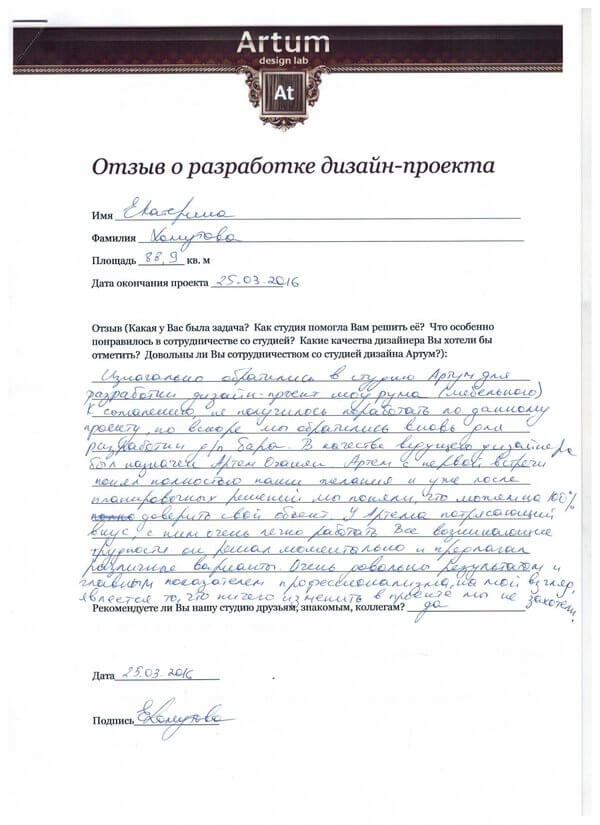 Artum
design lab
At
Отзыв о разработке дизайн-проекта
Имя Екатерина
Фамилия Хомутова
Площадь 88,9 кв. м
Дата окончания проекта 25.03.2016
Отзыв (Какая у Вас была задача? Как студия помогла Вам решить её? Что особенно
понравилось в сотрудничестве со студией? Какие качества дизайнера Вы хотели бы
отметить? Довольны ли Вы сотрудничеством со студией дизайна Артум?):
Изначально обратились в студию Артум для
разработки дизайн-проект шоу рума (мебельного)
К сожалению, не получилось поработать по данному
проекту, но вскоре мы обратились вновь для
разработки д/п бара. В качестве ведущего дизайнера
был назначен Артем Артем с первой встречи
понял полностью наши желания и уже после
планировочных решений мы поняли, что можем на 100%
доверить свой объект. У Артема потрясающий
вкус, с ним очень легко работать Все возникающие
трудности он решал моментально и предлагал
различные варианты. Очень довольны результатом и
главным показателем профессионализма, на мой взгляд,
является то, что ничего изменить в проекте мы не захотели.
Рекомендуете ли Вы нашу студию друзьям, знакомым, коллегам? да
Дата 25.03.2016
Подпись ЕХомутова